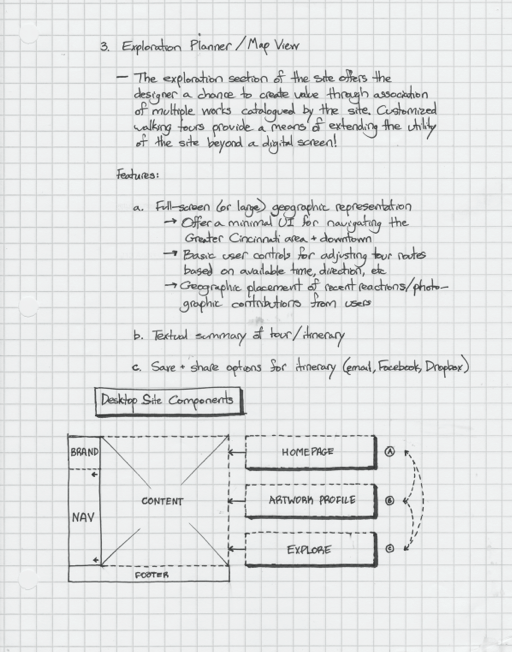 3. Exploration Planner / Map View
— The exploration section of the site offers the
designer a chance to create value through association
of multiple works catalogued by the site. Customized
walking tours provide a means of extending the utility
of the site beyond a digital screen!
Features:
a. Full-screen (or large) geographic representation
→ Offer a minimal UI for navigating the
Greater Cincinnati area + downtown
→ Basic user controls for adjusting tour routes
based on available time, direction, etc
→ Geographic placement of recent reactions/photo-
graphic contributions from users
b. Textual summary of tour/itinerary
c. Save + share options for itinerary (email, Facebook, Dropbox)
Desktop Site Components
BRAND
NAV
CONTENT
FOOTER
HOMEPAGE A
ARTWORK PROFILE B
EXPLORE C